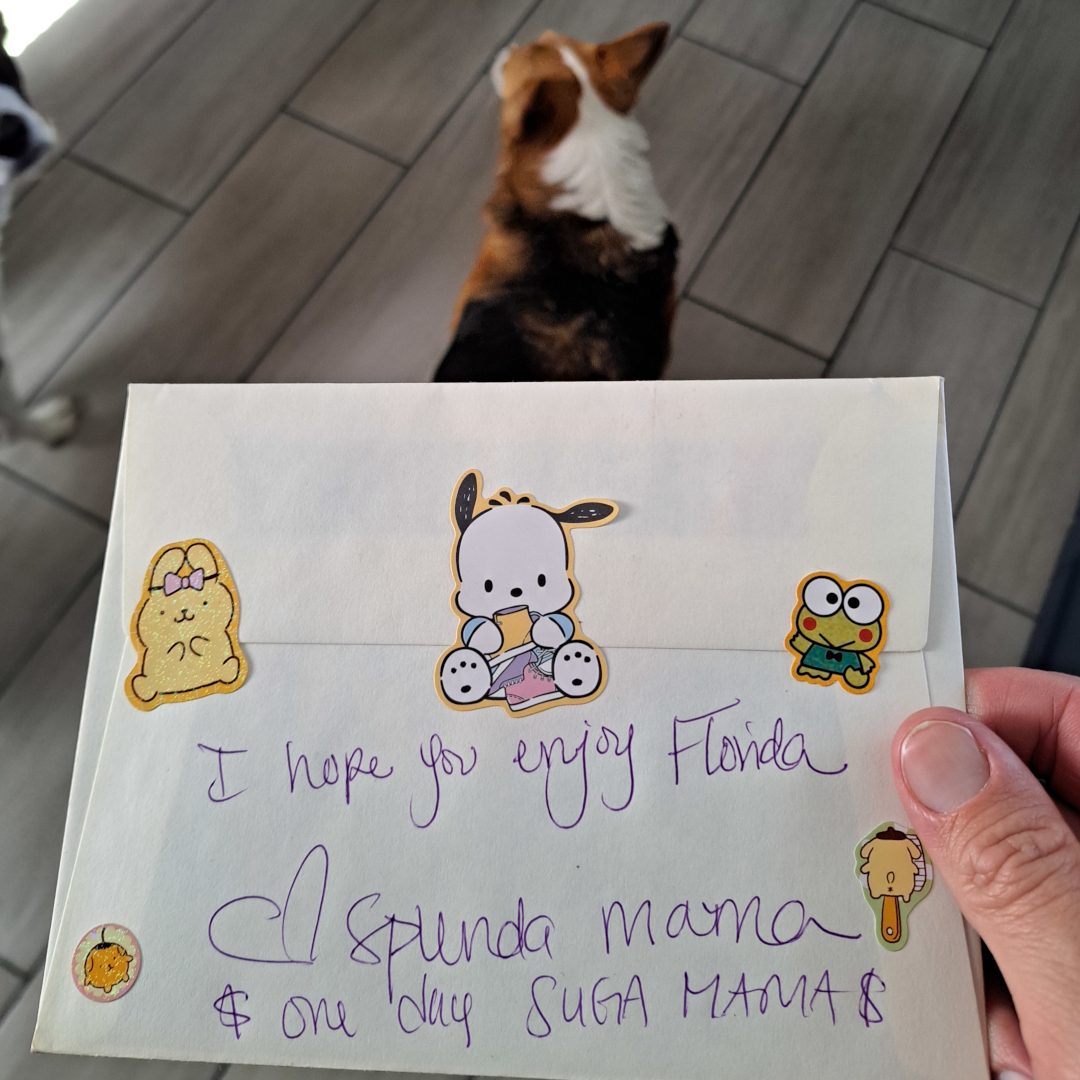 I hope you enjoy Florida
Splenda mama
$ one day SUGA MAMA $